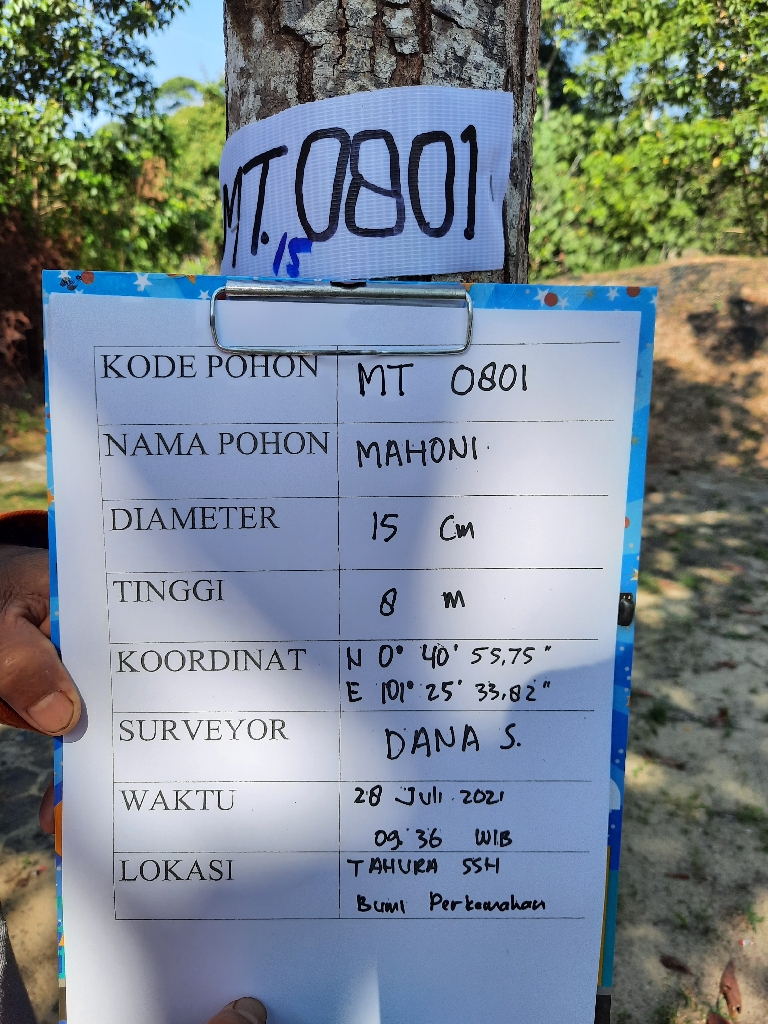 MT. 0801
15
KODE POHON MT 0801
NAMA POHON MAHONI.
DIAMETER 15 Cm
TINGGI 8 m
KOORDINAT N 0° 40' 55,75"
E 101° 25' 33,82"
SURVEYOR DANA S.
WAKTU 28 Juli 2021
09.36 WIB
LOKASI TAHURA SSH
Bumi Perkemahan